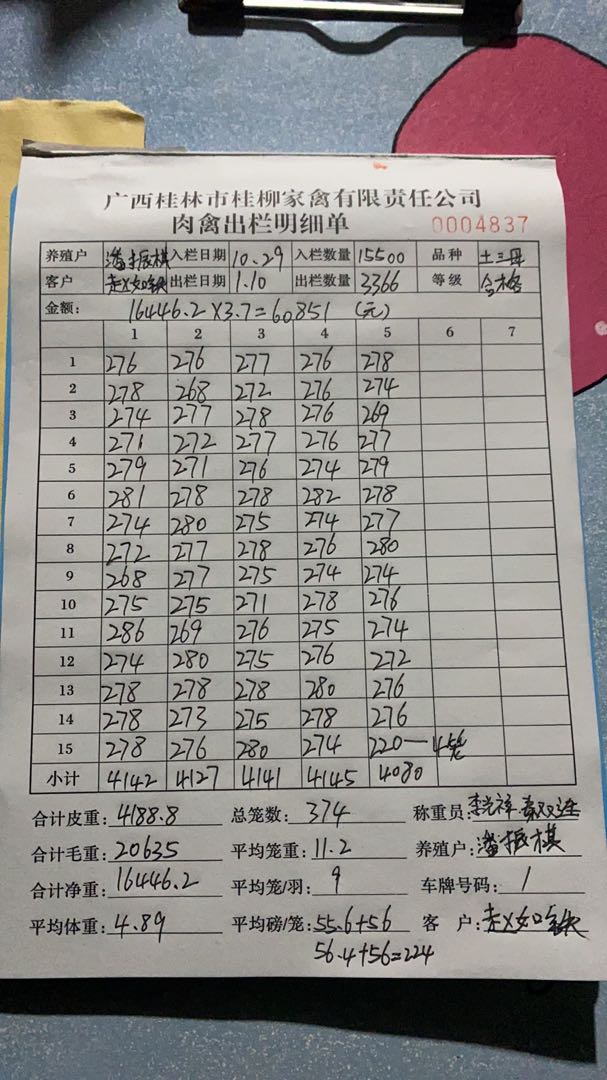 广西桂林市桂柳家禽有限责任公司
肉禽出栏明细单 0004837
养殖户 潘振棋 入栏日期 10.29 入栏数量 15500 品种 土三母
客户 赵如 出栏日期 1.10 出栏数量 3366 等级 合格
金额: 16446.2×3.7=60851 (元)
1 2 3 4 5 6 7
1 276 276 277 276 278
2 278 268 272 276 274
3 274 277 278 276 269
4 271 272 277 276 277
5 279 271 276 274 279
6 281 278 278 282 278
7 274 280 275 274 277
8 272 277 278 276 280
9 268 277 275 274 274
10 275 275 271 278 276
11 286 269 276 275 274
12 274 280 275 276 272
13 278 278 278 280 276
14 278 273 275 278 276
15 278 276 280 274 220—4
小计 4142 4127 4141 4145 4080
合计皮重: 4188.8 总笼数: 374 称重员: 李光祥
合计毛重: 20635 平均笼重: 11.2 养殖户: 潘振棋
合计净重: 16446.2 平均笼/羽: 9 车牌号码: 1
平均体重: 4.89 平均磅/笼: 55.6+56 客 户: 赵如
56.4+56=224